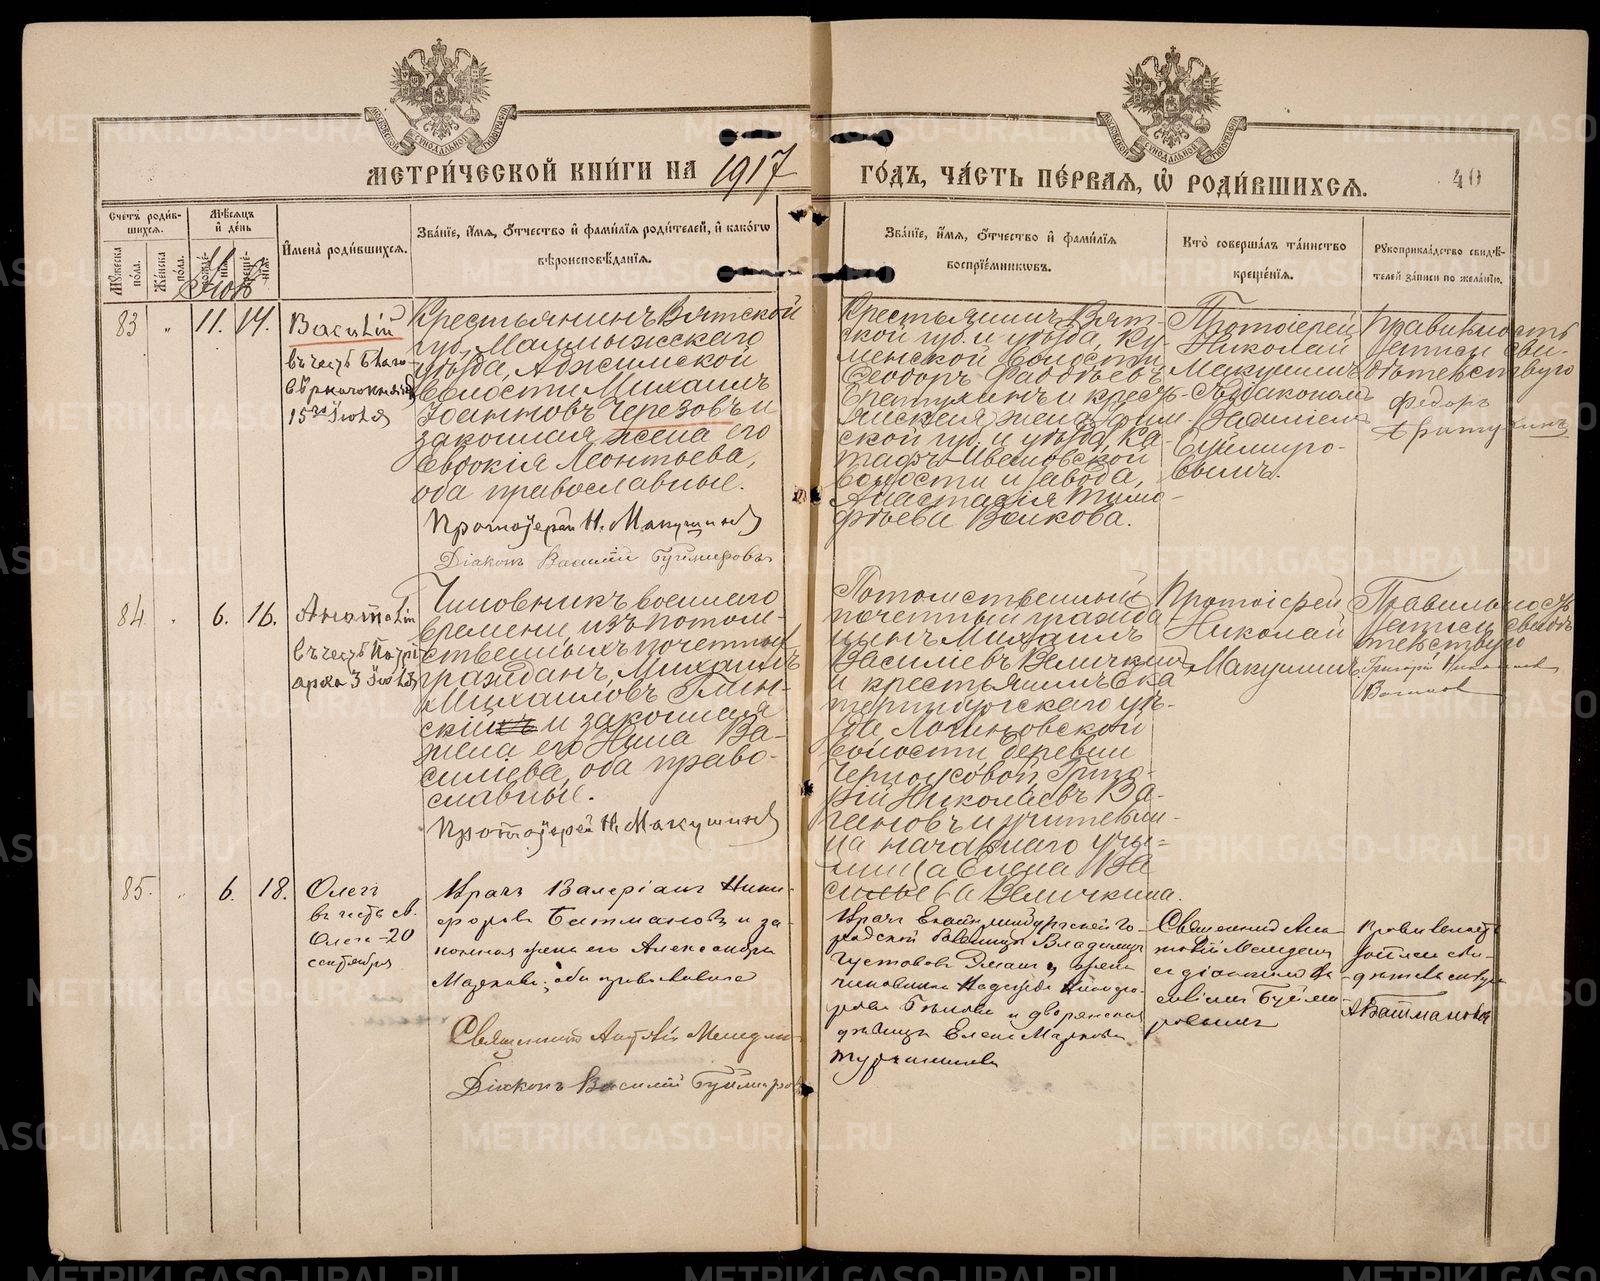 МЕТРИ́ЧЕСКОЙ КНИ́ГИ НА 1917
ГО́ДЪ, ЧА́СТЬ ПЕ́РВАЯ, Ѡ҆ РОДИ́ВШИХСЯ.
40
Счетъ роди́в-
шихся.
Мѣ́сяцъ
и҆ де́нь
Мꙋ́жеска
по́ла.
Же́нска
по́ла.
рожде́-
нїѧ
креще́-
нїѧ
И҆мена̀ роди́вшихся.
Зва́нїе, и҆́мя, ѻ҆́тчество и҆ фами́лїя роди́телей, и҆ како́гѡ
вѣроисповѣ́данїя.
Зва́нїе, и҆́мя, ѻ҆́тчество и҆ фами́лїя
воспрїе́мниковъ.
Кто̀ соверша́лъ та́инство
креще́нїя.
Рꙋкоприкла́дство свидѣ́-
телей за́писи по жела́нїю.
Іюль
83
"
11.
14.
Василій
въ честь благо
вѣрнаго князя
15го Іюля
Крестьянинъ Вятской
губ. Малмыжского
уѣзда, Аджимской
волости Михаилъ
Іоанновъ Черезовъ и
законная жена его
Евдокія Леонтьева,
оба православные.
Протоіерей Н. Макушинъ
Діаконъ Василій Буймировъ
Крестьянинъ Вят-
ской губ. и уѣзда, Ку-
менской волости
Ѳеодоръ
и кресть-
янская жена
ской губ. и уѣзда, Ка-
тафъ-Ивановской
волости и завода,
Анастасія Тимо-
феева Волкова.
Протоіерей
Николай
Макушинъ
съ діакономъ
Василіемъ
Буймиро-
вымъ.
Правильность
записи сви-
дѣтельствую
Федоръ
84
6.
16.
Анатолій
въ честь Патрі
арха 3 Іюля
Чиновникъ военнаго
времени изъ потом-
ственныхъ почетныхъ
гражданъ, Михаилъ
Михаиловъ Глин-
скій и законная
жена его Нина Ва-
силіева, оба право-
славные.
Протоіерей Н. Макушинъ
Потомственный
почетный гражда
нинъ Михаилъ
Василіевъ Величкинъ
и крестьянинъ Ека
теринбургскаго уѣз-
да, Логиновской
волости деревни
Черноусовой, Григо-
рій Николаевъ Ва-
гановъ и учительни-
ца начальнаго учи-
лища Елена Ва
сильева Величкина.
Протоіерей
Николай
Макушинъ.
Правильность
записи свидѣ
тельствую
Григорій Николаевъ
Вагановъ
85.
6.
18.
Олегъ
въ честь св.
Олега 20
сентября
Врачъ Валеріанъ Ники-
форовъ Батмановъ и за-
конная жена его Александра
Маркова, оба православные
Священникъ
Діаконъ Василій Буймировъ
Врачъ Екатеринбургской го-
родской больницы Владимиръ
Густавовъ
Надежда Никифо-
рова
и дворянская
дѣвица Елена Маркова
Турчанинова
Священникъ
съ діакономъ Ва
силіемъ Буйми-
ровымъ
Правильность
записи сви-
дѣтельствую
АБатманова
METRIKI.GASO-URAL.RU